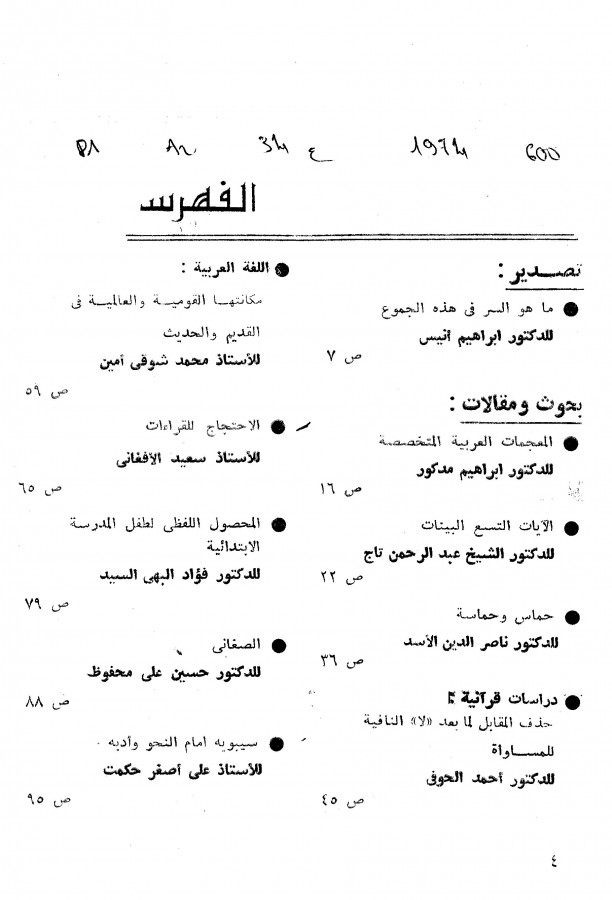 P1 Az 34 ع 1974 600
الفهرس
تصدير :
● ما هو السر فى هذه الجموع
للدكتور ابراهيم أنيس
ص ٧
بحوث ومقالات :
● المعجمات العربية المتخصصة
للدكتور ابراهيم مدكور
ص ١٦
● الآيات التسع البينات
للدكتور الشيخ عبد الرحمن تاج
ص ٢٢
● حماس وحماسة
للدكتور ناصر الدين الأسد
ص ٣٦
● دراسات قرآنية :
حذف المقابل لما بعد «لا» النافية
للمساواة
للدكتور أحمد الحوفى
ص ٤٥
● اللغة العربية :
مكانتها القومية والعالمية فى
القديم والحديث
للأستاذ محمد شوقى أمين
ص ٥٩
● الاحتجاج للقراءات
للأستاذ سعيد الأفغانى
ص ٦٥
● المحصول اللفظى لطفل المدرسة
الابتدائية
للدكتور فؤاد البهى السيد
ص ٧٩
● الصغانى
للدكتور حسين على محفوظ
ص ٨٨
● سيبويه امام النحو وأدبه
للأستاذ على أصغر حكمت
ص ٩٥
٤